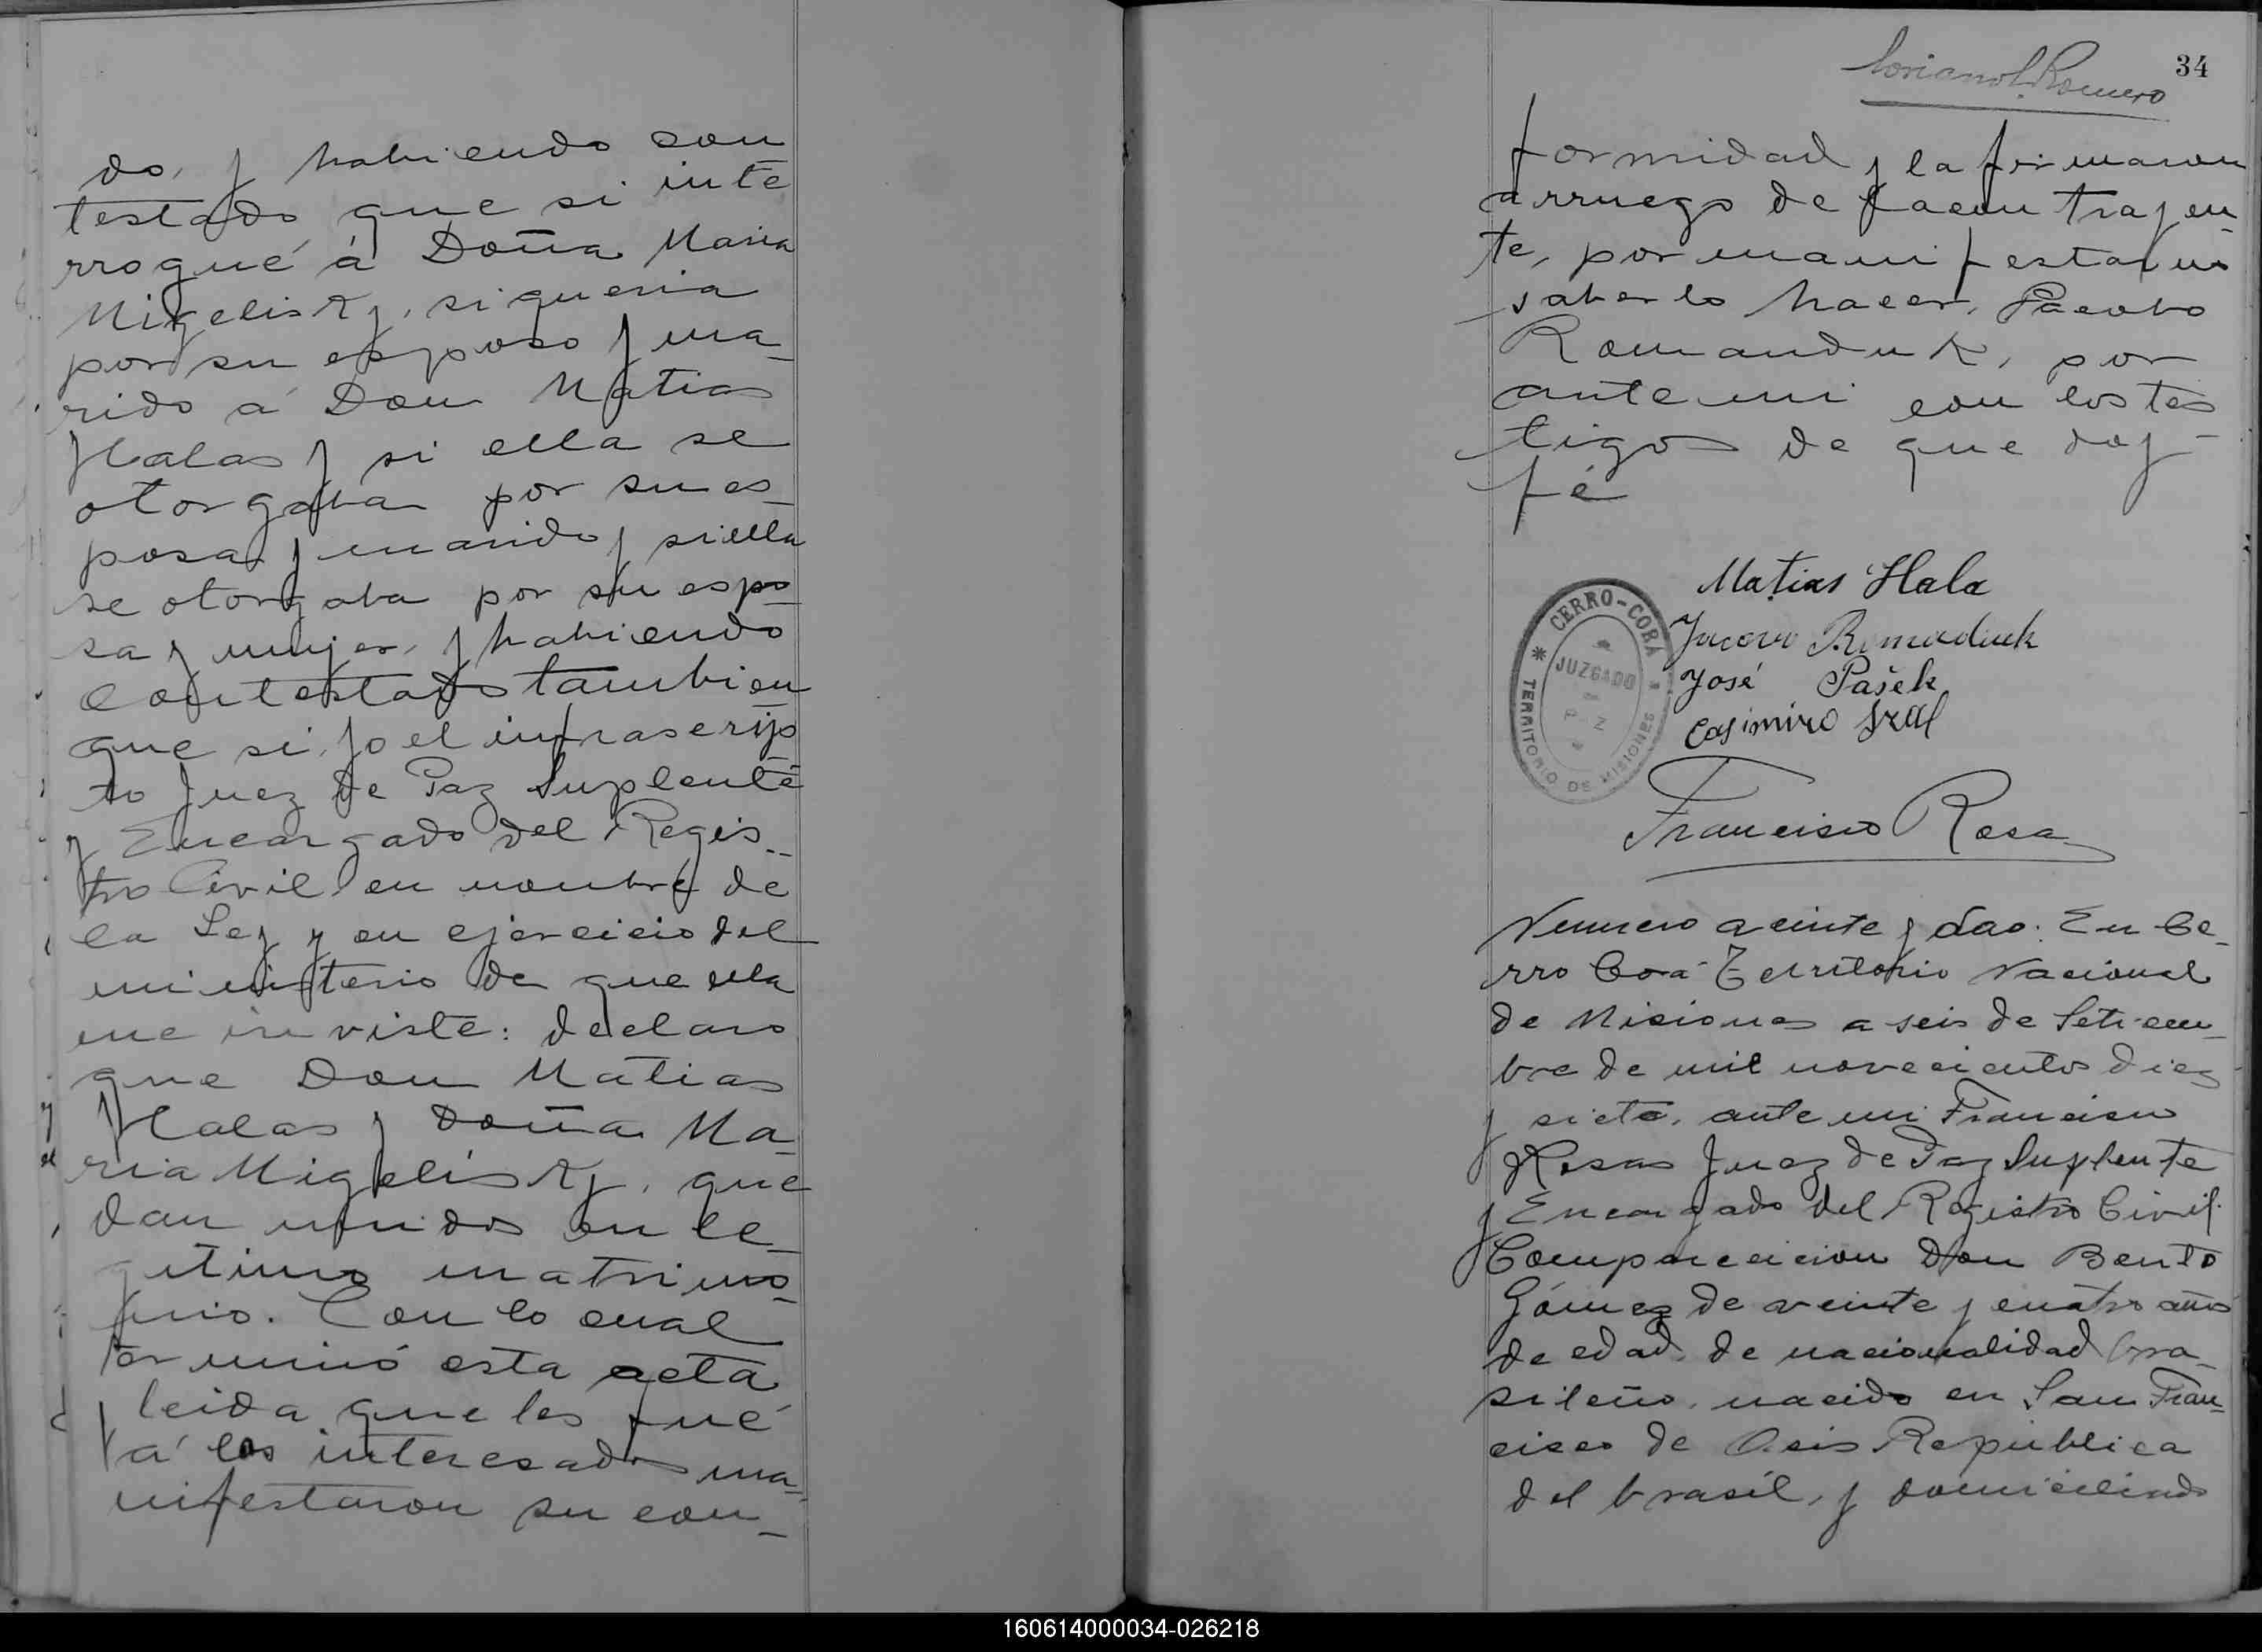 do, y habiendo con
testado que si inte
rrogué á Doña Maria
Migelisky, si queria
por su esposo y ma-
rido a Don Matias
Halas y si ella se
otorgaba por su es-
posa y marido y si ella
se otorgaba por su espo-
sa y mujer, y habiendo
contestado tambien
que si, yo el infrascrip
to Juez de Paz Suplente
y Encargado del Regis-
tro Civil en nombre de
la Ley y en ejercicio del
ministerio de que ella
me inviste: declaro
que Don Matias
Halas y Doña Ma-
ria Migelisky, que
dan unidos en le-
gitimo matrimo-
nio. Con lo cual
terminó esta acta
y leida que les fué
á los interesados ma-
nifestaron su con-
34
Romero
formidad y la firmaron
a rruego de la contrayen-
te, por manifestar no
saberlo hacer, Jacobo
Romanduk, por
ante mi con los tes
tigos de que doy
fé
Matias Hala
Jacovo Romaduk
José Pašek
Casimiro
CERRO-CORÁ
JUZGADO
DE
PAZ
TERRITORIO DE MISIONES
Francisco Rosa
Numero veinte y dos: En Ce-
rro Corá Territorio Nacional
de Misiones a seis de Setiem-
bre de mil novecientos diez
y siete, ante mi Francisco
Rosas Juez de Paz Suplente
y Encargado del Registro Civil.
Comparecieron Don Bento
Gómez de veinte y cuatro años
de edad, de nacionalidad bra-
sileño, nacido en San Fran-
cisco de Asis Republica
del brasil, y domiciliado
160614000034-026218